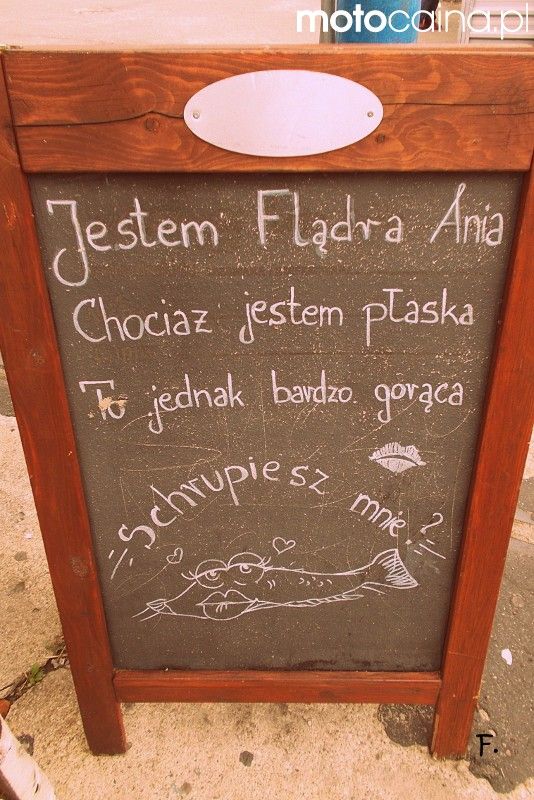 motocaina.pl
Jestem Flądra Ania
Chociaż jestem płaska
To jednak bardzo gorąca
Schrupiesz mnie?
F.